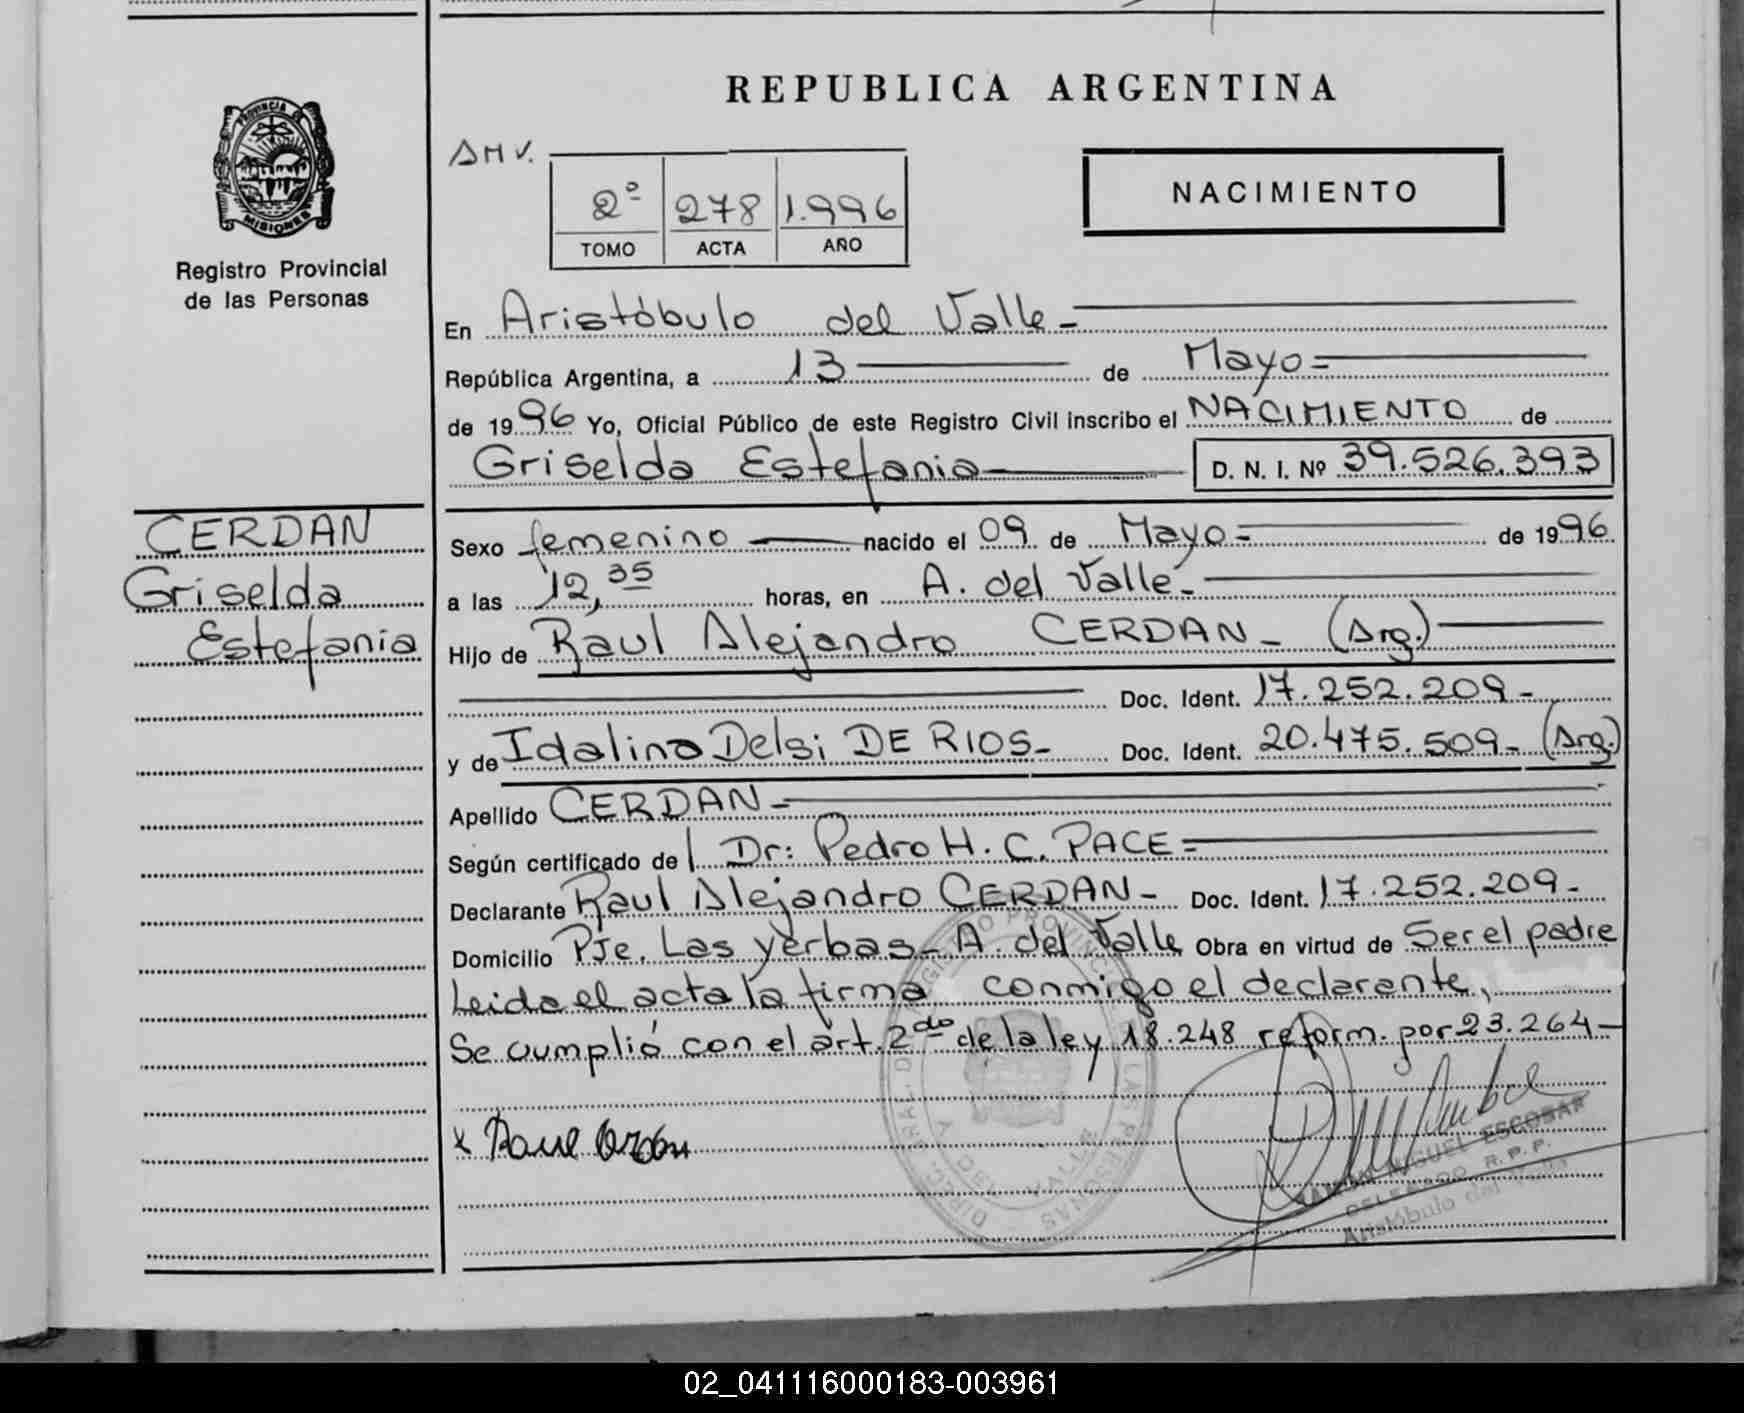 REPUBLICA ARGENTINA
PROVINCIA
MISIONES
Registro Provincial
de las Personas
AMV.
2º 278 1.996
TOMO ACTA AÑO
NACIMIENTO
En Aristóbulo del Valle-
República Argentina, a 13 de Mayo=
de 1996 Yo, Oficial Público de este Registro Civil inscribo el NACIMIENTO de
Griselda Estefania D. N. I. Nº 39.526.393
CERDAN
Griselda
Estefania
Sexo femenino nacido el 09 de Mayo= de 1996
a las 12,35 horas, en A. del Valle-
Hijo de Raul Alejandro CERDAN- (Arg.)
Doc. Ident. 17.252.209-
y de Idalina Delsi DE RIOS- Doc. Ident. 20.475.509- (Arg.)
Apellido CERDAN-
Según certificado de Dr: Pedro H. C. PACE=
Declarante Raul Alejandro CERDAN- Doc. Ident. 17.252.209-
Domicilio Pje. Las yerbas- A. del Valle Obra en virtud de Ser el padre
Leida el acta la firma conmigo el declarante,
Se cumplió con el art. 2do de la ley 18.248 reform. por 23.264-
x
MIGUEL ESCOBAR
DELEGADO R. P. P.
Aristóbulo del Valle
02_041116000183-003961